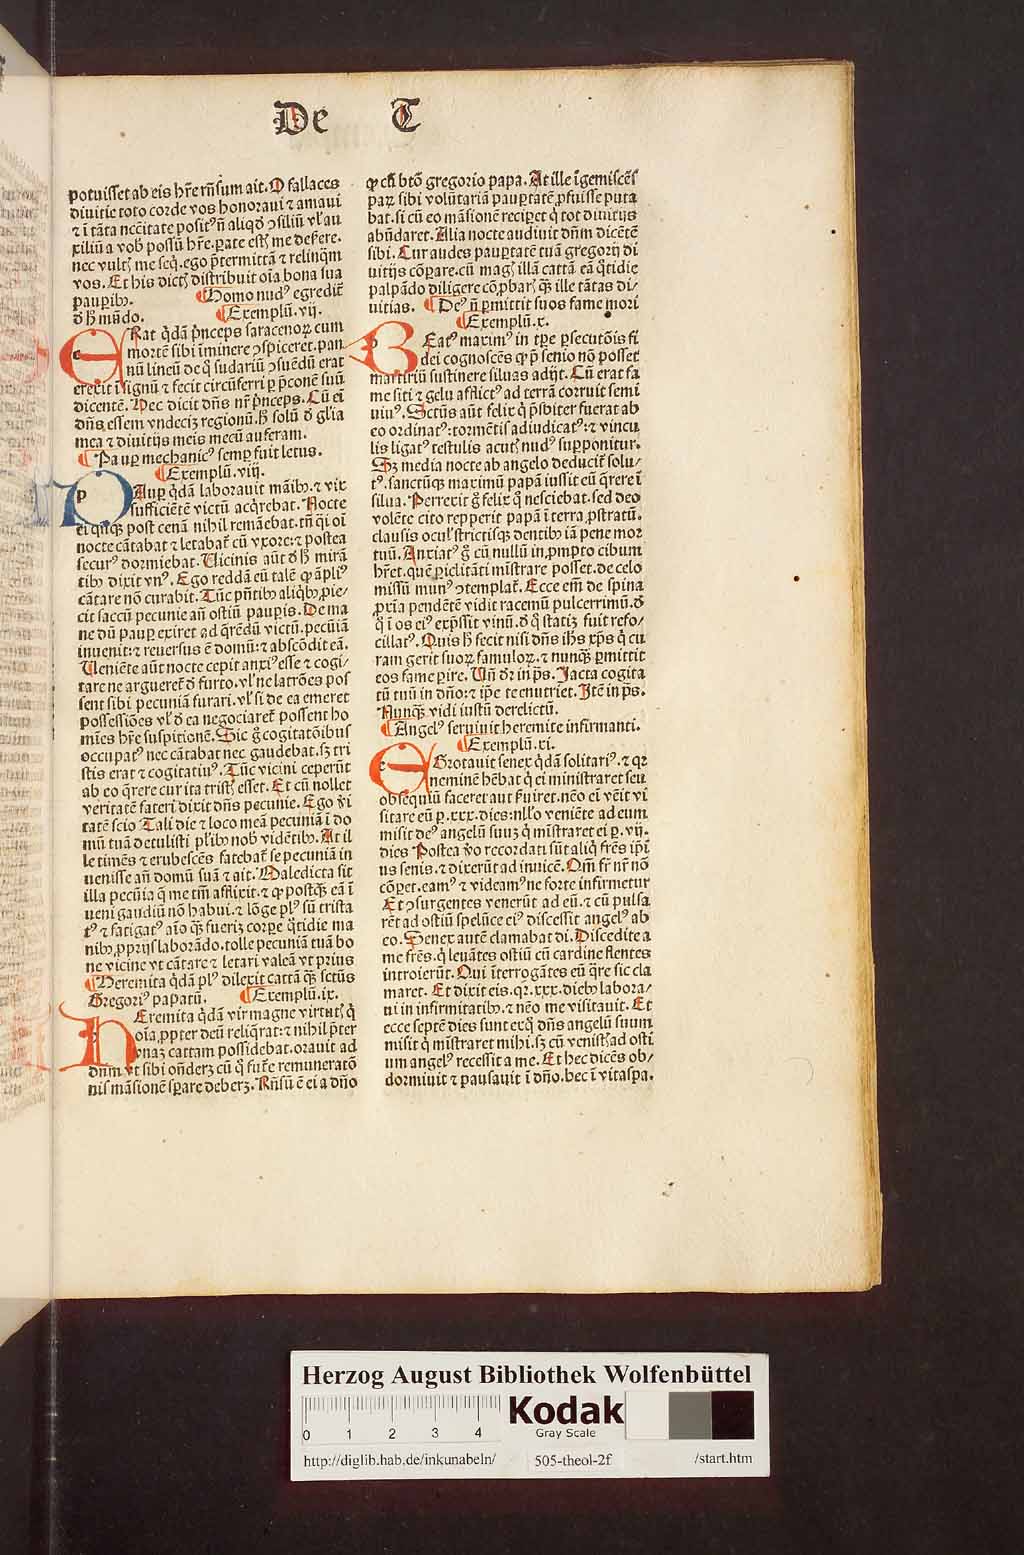 De T
potuisset ab eis hr̄e rūsum ait. O fallaces
diuitie toto corde vos honoraui ⁊ amaui
⁊ ī tāta ncc̄itate positꝰ n̄ aliqd̄ ꝯsiliū vl̓ au
xiliū a vob̓ possū hr̄e. ꝑate estꝭ me deẜere.
nec vultꝭ me seq̄. ego p̄termittā ⁊ relinq̄m
vos. Et his dictꝭ distribuit oīa bona sua
pauꝑibꝫ. ¶Homo nudꝰ egredit̄
d̄ h̄ mūdo. ¶Exemplū. vij.
ERat qd̄ā pn̄ceps saracenoꝝ cum
mortē sibi īminere ꝯspiceret. pan
nū lineū de q̄ sudariū ꝯsuēdū erat
erexit ī signū ⁊ fecit circūferri ꝑ p̄conē suū
dicentē. Hec dicit dn̄s nr̄ pn̄ceps. Cū ei
dn̄s essem vndeciꝫ regionū. h̄ solū d̄ glia
mea ⁊ diuitijs meis mecū auferam.
¶Pauꝑ mechanicꝰ semꝑ fuit letus.
¶Exemplū. viij.
PAuꝑ qd̄ā laborauit māibꝫ ⁊ vix
sufficiētē victū acq̄rebat. Nocte
ei qn̄qꝫ post cenā nihil remāebat. tn̄ qi oī
nocte cātabat ⁊ letabat̄ cū vxore: ⁊ postea
securꝰ dormiebat. Vicinis aūt d̄ h̄ mirā
tibꝫ dixit vnꝰ. Ego reddā eū talē ꝙ āpliꝰ
cātare nō curabit. Tūc pn̄tibꝫ aliqbꝫ ꝓie/
cit saccū pecunie an̄ ostiū pauꝑis. De ma
ne dū pauꝑ exiret ad q̄rēdū victū. pecūiā
inuenit: ⁊ reuersus ē domū: ⁊ abscōdit eā.
Veniēte aūt nocte cepit anxiꝰ esse ⁊ cogi/
tare ne argueret̄ d̄ furto. vl̓ ne latrōes pos
sent sibi pecuniā furari. vl̓ si de ea emeret
possessiōes vl̓ d̄ ea negociaret̄ possent ho
mīes hr̄e suspitionē. Sic g̊ cogitatōibus
occupatꝰ nec cātabat nec gaudebat. sꝫ tri
stis erat ⁊ cogitatiuꝰ. Tūc vicini ceperūt
ab eo q̄rere cur ita tristꝭ esset. Et cū nollet
veritatē fateri dixit dn̄s pecunie. Ego v̓i
tatē scio Tali die ⁊ loco meā pecuniā ī do
mū tuā detulisti pl̓ibꝫ nob̓ vidētibꝫ. At il
le timēs ⁊ erubescēs fatebat̄ se pecuniā in
uenisse an̄ domū suā ⁊ ait. Maledicta sit
illa pecūia q̄ me tm̄ afflixit ⁊ ꝙ postqꝫ eā ī
ueni gaudiū nō habui. ⁊ lōge plꝰ sū trista
tꝰ ⁊ fatigatꝰ aīo qꝫ fueriꝫ corꝑe q̄tidie ma
nibꝫ ꝓprijs laborādo. tolle pecuniā tuā bo
ne vicine vt cātare ⁊ letari valeā vt prius
¶Heremita qd̄ā plꝰ dilexit cattā qꝫ sctūs
Gregoriꝰ papatū. ¶Exemplū. ix.
HEremita qd̄ā vir magne virtutꝭ q̄
oīa ꝓpter deū reliq̄rat: ⁊ nihil p̄ter
vnaꝫ cattam possidebat. orauit ad
dn̄m vt sibi on̄derꝫ cū q̄ fut̄e remuneratō
nis māsionē sꝑare deberꝫ. Rn̄sū ē ei a dn̄o
ꝙ cū btō gregorio papa. At ille īgemiscēs
paꝝ sibi volūtariā pauꝑtatē ꝓfuisse puta
bat. si cū eo māsionē reciꝑet q̄ tot diuitijs
abūdaret. Alia nocte audiuit dn̄m dicētē
sibi. Cur audes pauꝑtatē tuā gregorij di
uitijs cōꝑare. cū magꝭ illā cattā eā q̄tidie
palpādo diligere cōꝓbarꝭ qꝫ ille tātas di/
uitias. ¶Deꝰ n̄ ꝑmittit suos fame mori
¶Exemplū. x.
BEatꝰ maximꝰ in tꝑe ꝑsecutōis fi
dei cognoscēs ꝙ p̄ senio nō posset
martiriū sustinere siluas adijt. Cū erat fa
me siti ⁊ gelu afflictꝰ ad terrā corruit semi
uiuꝰ. Sctūs aūt felix q̄ p̄sbiter fuerat ab
eo ordinatꝰ: tormētis adiudicatꝰ: ⁊ vincu
lis ligatꝰ testulis acutꝭ nudꝰ supponitur.
Sꝫ media nocte ab angelo deducit̄ solu/
tꝰ. sanctūqꝫ maximū papā iussit eū q̄rere ī
silua. Perrexit g̊ felix q̄ nesciebat. sed deo
volēte cito repperit papā ī terra ꝓstratū.
clausis ocul̓ strictisqꝫ dentibꝫ iā pene mor
tuū. Anxiatꝰ g̊ cū nullū in ꝓmpto cibum
hr̄et. quē ꝑiclitāti mīstrare posset. de celo
missū munꝰ ꝯtemplat̄. Ecce em̄ de spina
ꝓxīa pendētē vidit racemū pulcerrimū. d̄
q̄ ī os eiꝰ exp̄ssit vinū. d̄ q̄ statiꝫ fuit refo/
cillatꝰ. Quis h̄ fecit nisi dn̄s ih̄s xp̄s q̄ cu
ram gerit suoꝝ famuloꝝ. ⁊ nunqꝫ ꝑmittit
eos fame ꝑire. Vn̄ dr̄ in ps̄. Jacta cogita
tū tuū in dn̄o: ⁊ ip̄e te enutriet. Jtē in ps̄.
Nunqꝫ vidi iustū derelictū.
¶Angelꝰ seruiuit heremite infirmanti.
¶Exemplū. xi.
EGrotauit senex qd̄ā solitariꝰ. ⁊ qꝛ
neminē hēbat q̄ ei ministraret seu
obsequiū faceret aut ẜuiret. nēo ei vēit vi
sitare eū ꝑ. xxx. dies: nll̓o veniēte ad eum
misit deꝰ angelū suuꝫ q̄ mīstraret ei ꝑ. vij.
dies Postea v̓o recordati sūt aliq̄ frēs ip̄i
us senis. ⁊ dixerūt ad inuicē. Om̄ fr̄ nr̄ nō
cōꝑet. eamꝰ ⁊ videamꝰ ne forte infirmetur
Et ꝯsurgentes venerūt ad eū. ⁊ cū pulsa
rēt ad ostiū spelūce eiꝰ discessit angelꝰ ab
eo. Senex autē clamabat di. Discedite a
me frēs. q̄ leuātes ostiū cū cardine flentes
introierūt. Qui īterrogātes eū q̄re sic cla
maret. Et dixit eis. qꝛ. xxx. diebꝫ labora/
ui in infirmitatibꝫ. ⁊ nēo me visitauit. Et
ecce septē dies sunt exq̄ dn̄s angelū suum
misit q̄ mīstraret mihi. sꝫ cū venistꝭ ad osti
um angelꝰ recessit a me. Et hec dicēs ob/
dormiuit ⁊ pausauit ī dn̄o. hec ī vitaspa.
Herzog August Bibliothek Wolfenbüttel
0 1 2 3 4
Kodak
Gray Scale
http://diglib.hab.de/inkunabeln/ 505-theol-2f /start.htm